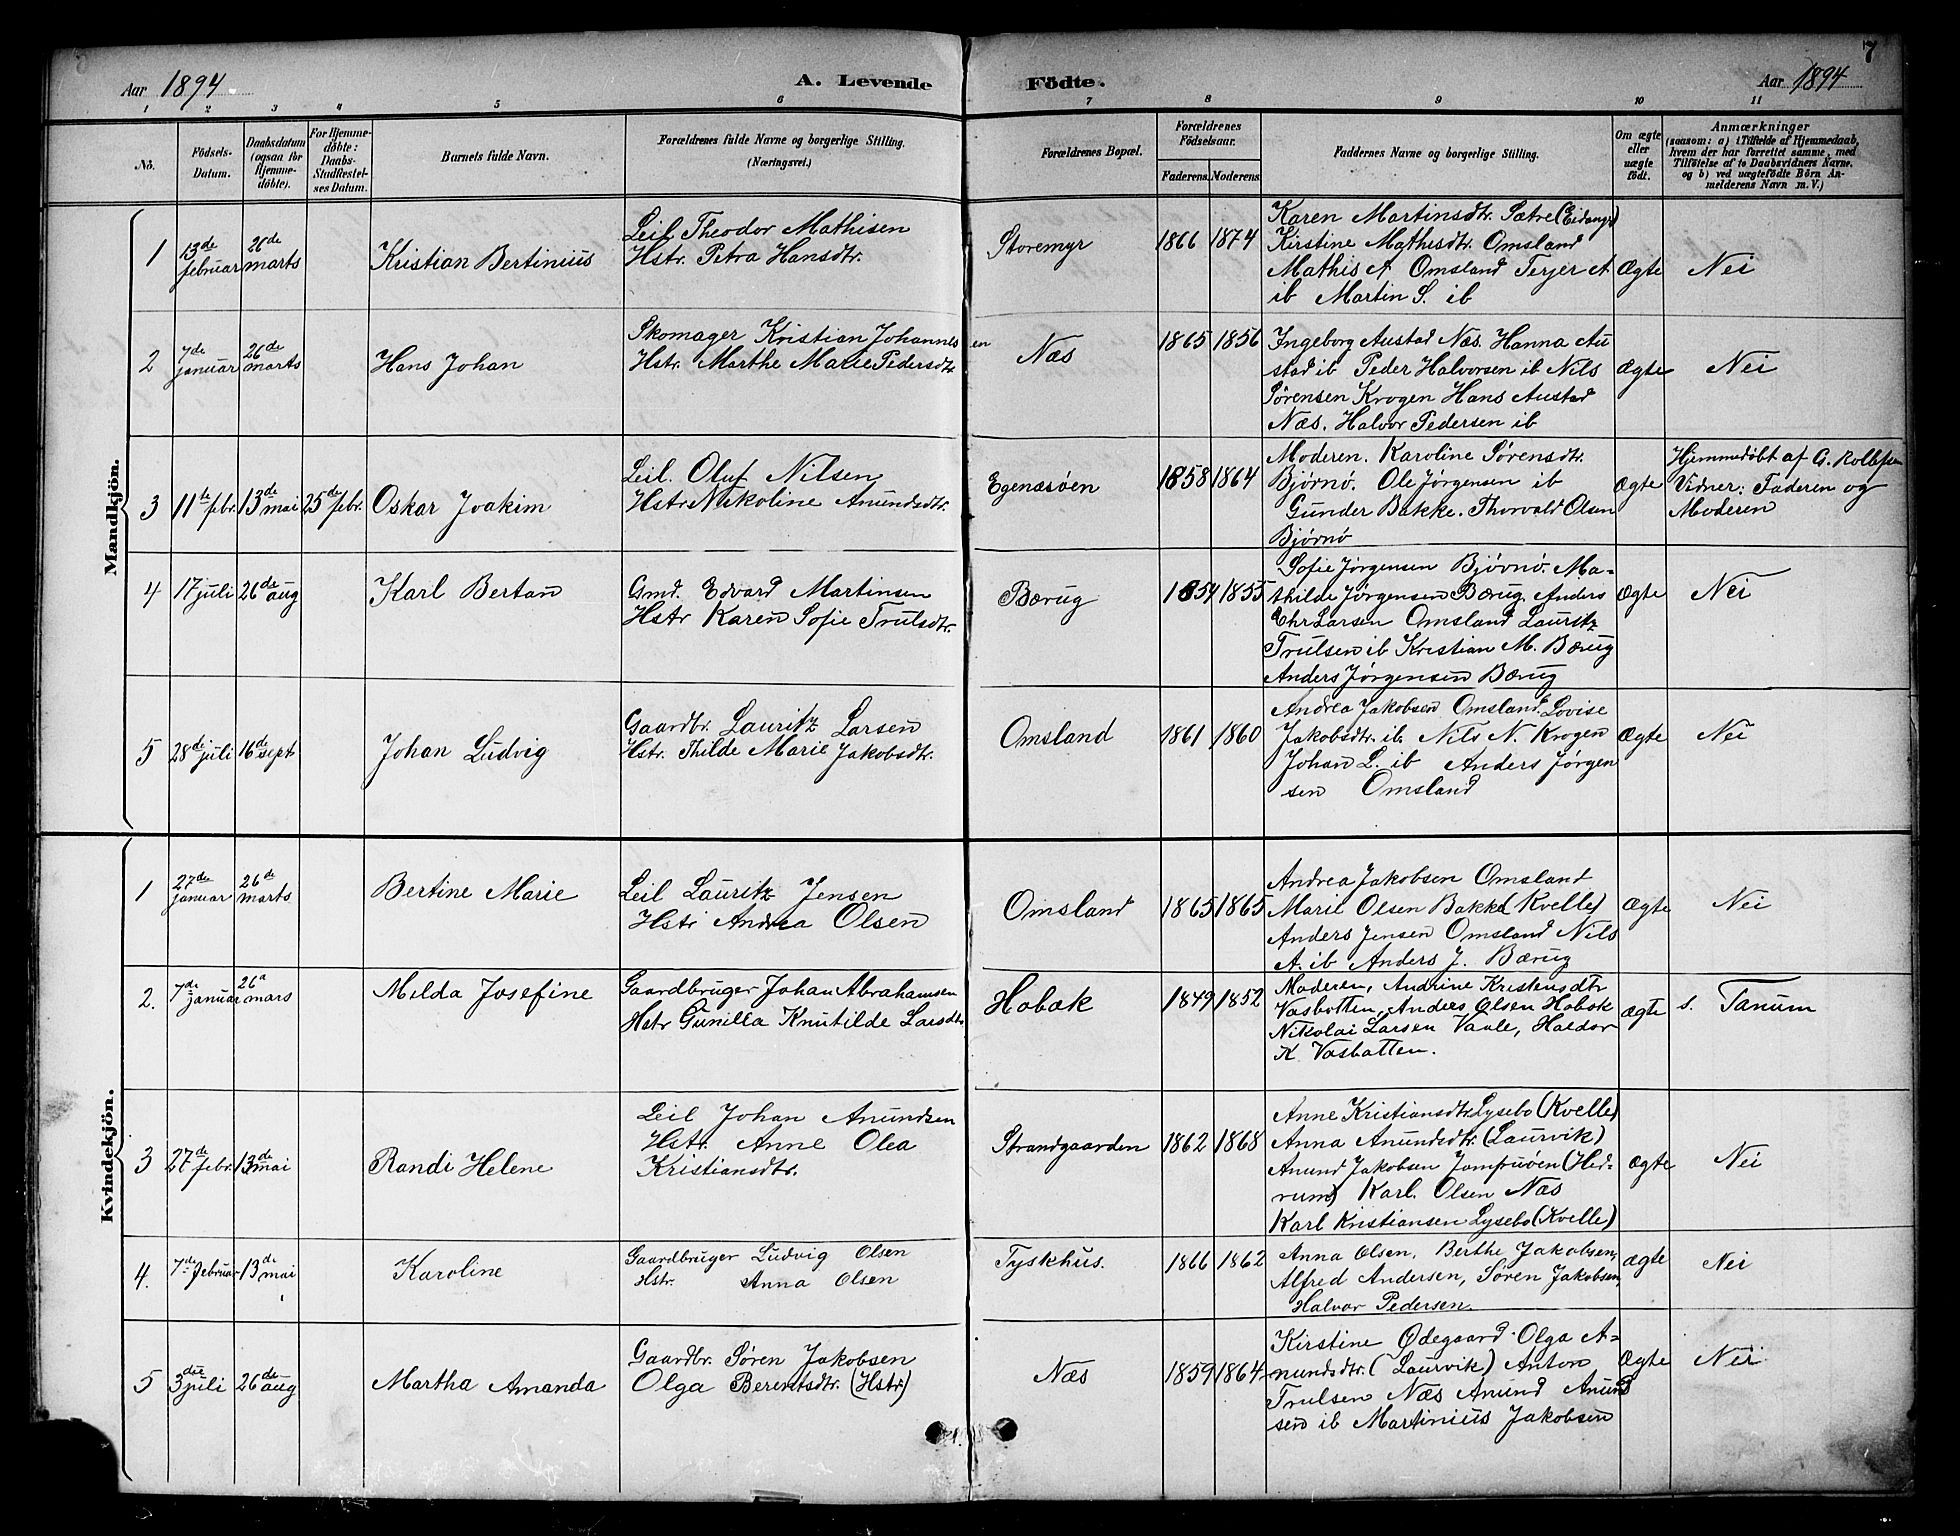 7
Aar 1894. A. Levende Födte. Aar 1894
1 2 3 4 5 6 7 8 9 10 11
No.
Födsels-
Datum.
Daabsdatum
(ogsaa for
Hjemme-
döbte).
For Hjemme-
döbte:
Daabs-
Stadfæstel-
ses Datum.
Barnets fulde Navn.
Forældrenes fulde Navne og borgerlige Stilling.
(Næringsvei.)
Forældrenes Bopæl.
Forældrenes
Födselsaar.
Faderens. Moderens.
Faddernes Navne og borgerlige Stilling.
Om ægte
eller
uægte
födt.
Anmærkninger
(saasom: a) i Tilfælde af Hjemmedaab,
hvem der har forrettet samme, med
Tilföielse af to Daabsvidners Navne,
og b) ved uægtefödte Börn An-
melderens Navn m. V.)
Mandkjön.
1
13de
februar
26de
marts
Kristian Bertinius
Leil. Theodor Mathisen
Hstr. Petra Hansdtr.
Storemyr
1866 1874
Karen Martinsdtr. Sætre (Eidanger)
Kirstine Mathisdtr. Omsland
Mathis A Omsland Terjer A
ib Martin S. ib
Ægte
Nei
2
7de
januar
26de
marts
Hans Johan
Skomager Kristian Johannesen
Hstr. Marthe Marie Pedersdtr
Næs
1865 1856
Ingeborg Austad Næs. Hanna Au
stad ib Peder Halvorsen ib Nils
Sørensen Krogen Hans Austad
Næs. Halvor Pedersen ib
Ægte
Nei
3
11te febr.
13de mai
25de febr.
Oskar Joakim
Leil. Oluf Nilsen
Hstr Nikoline Anundsdtr.
Egenæsøen
1858 1864
Moderen. Karoline Sørensdtr.
Bjørnø. Ole Jørgensen ib
Gunder Bakke. Thorvald Olsen
Bjørnø
Ægte
Hjemmedøbt af G. Rollefsen
Vidner: Faderen og
Moderen
4
17 juli
26de aug
Karl Bertan
Gmd. Edvard Martinsen
Hstr Karen Sofie Trulsdtr.
Bærug
1854 1855
Sofie Jørgensen Bjørnø. Ma-
thilde Jørgensen Bærug. Anders
Chr Larsen Omsland Lauritz
Trulsen ib Kristian M. Bærug
Anders Jørgensen Bærug
Ægte
Nei
5
28de juli
16de sept
Johan Ludvig
Gaardbr. Lauritz Larsen
Hstr. Thilde Marie Jakobsdtr.
Omsland
1861 1860
Andrea Jakobsen Omsland. Lovise
Jakobsdtr. ib. Nils N. Krogen
Johan L. ib Anders Jørgen
sen Omsland
Ægte
Nei
Kvindekjön.
1
27de
januar
26de
marts
Bertine Marie
Leil Lauritz Jensen
Hstr Andrea Olsen
Omsland
1865 1865
Andrea Jakobsen Omsland
Maril Olsen Bakke (Kvelle)
Anders Jensen Omsland Nils
A. ib Anders J. Bærug
Ægte
Nei
2.
7de
januar
26
mars
Milda Josefine
Gaardbruger Johan Abrahamsen
Hstr Gunilla Knutilde Larsdtr
Hobæk
1849 1852
Moderen, Andrine Kristensdtr
Vasbotten, Anders Olsen Hobæk
Nikolai Larsen Vaale, Haldor
K. Vasbotten.
ægte
s. Tanum
3
27de febr.
13de mai
Randi Helene
Leil Johan Anundsen
Hstr. Anne Olea
Kristiansdtr.
Strandgaarden
1862 1868
Anne Kristiansdtr Lysebo (Kvelle)
Anna Anundsdtr. (Laurvik)
Anund Jakobsen (Hed-
rum) Karl. Olsen Næs
Karl Kristiansen Lysebo (Kvelle)
Ægte
Nei
4.
7de februar
13de mai
Karoline
Gaardbruger Ludvig Olsen
Hstr. Anna Olsen
Tyskhus.
1866 1862
Anna Olsen, Berthe Jakobsen,
Alfred Andersen, Søren Jakobsen,
Halvor Pedersen
ægte
Nei
5
3die juli
26de aug
Martha Amanda
Gaardbr. Søren Jakobsen
Olga Berentsdtr. (Hstr)
Næs
1859 1864
Kirstine Ødegaard. Olga A-
nundsdtr. (Laurvik) Anton
Trulsen Næs Anund Anund
sen ib Martinius Jakobsen
Ægte
Nei